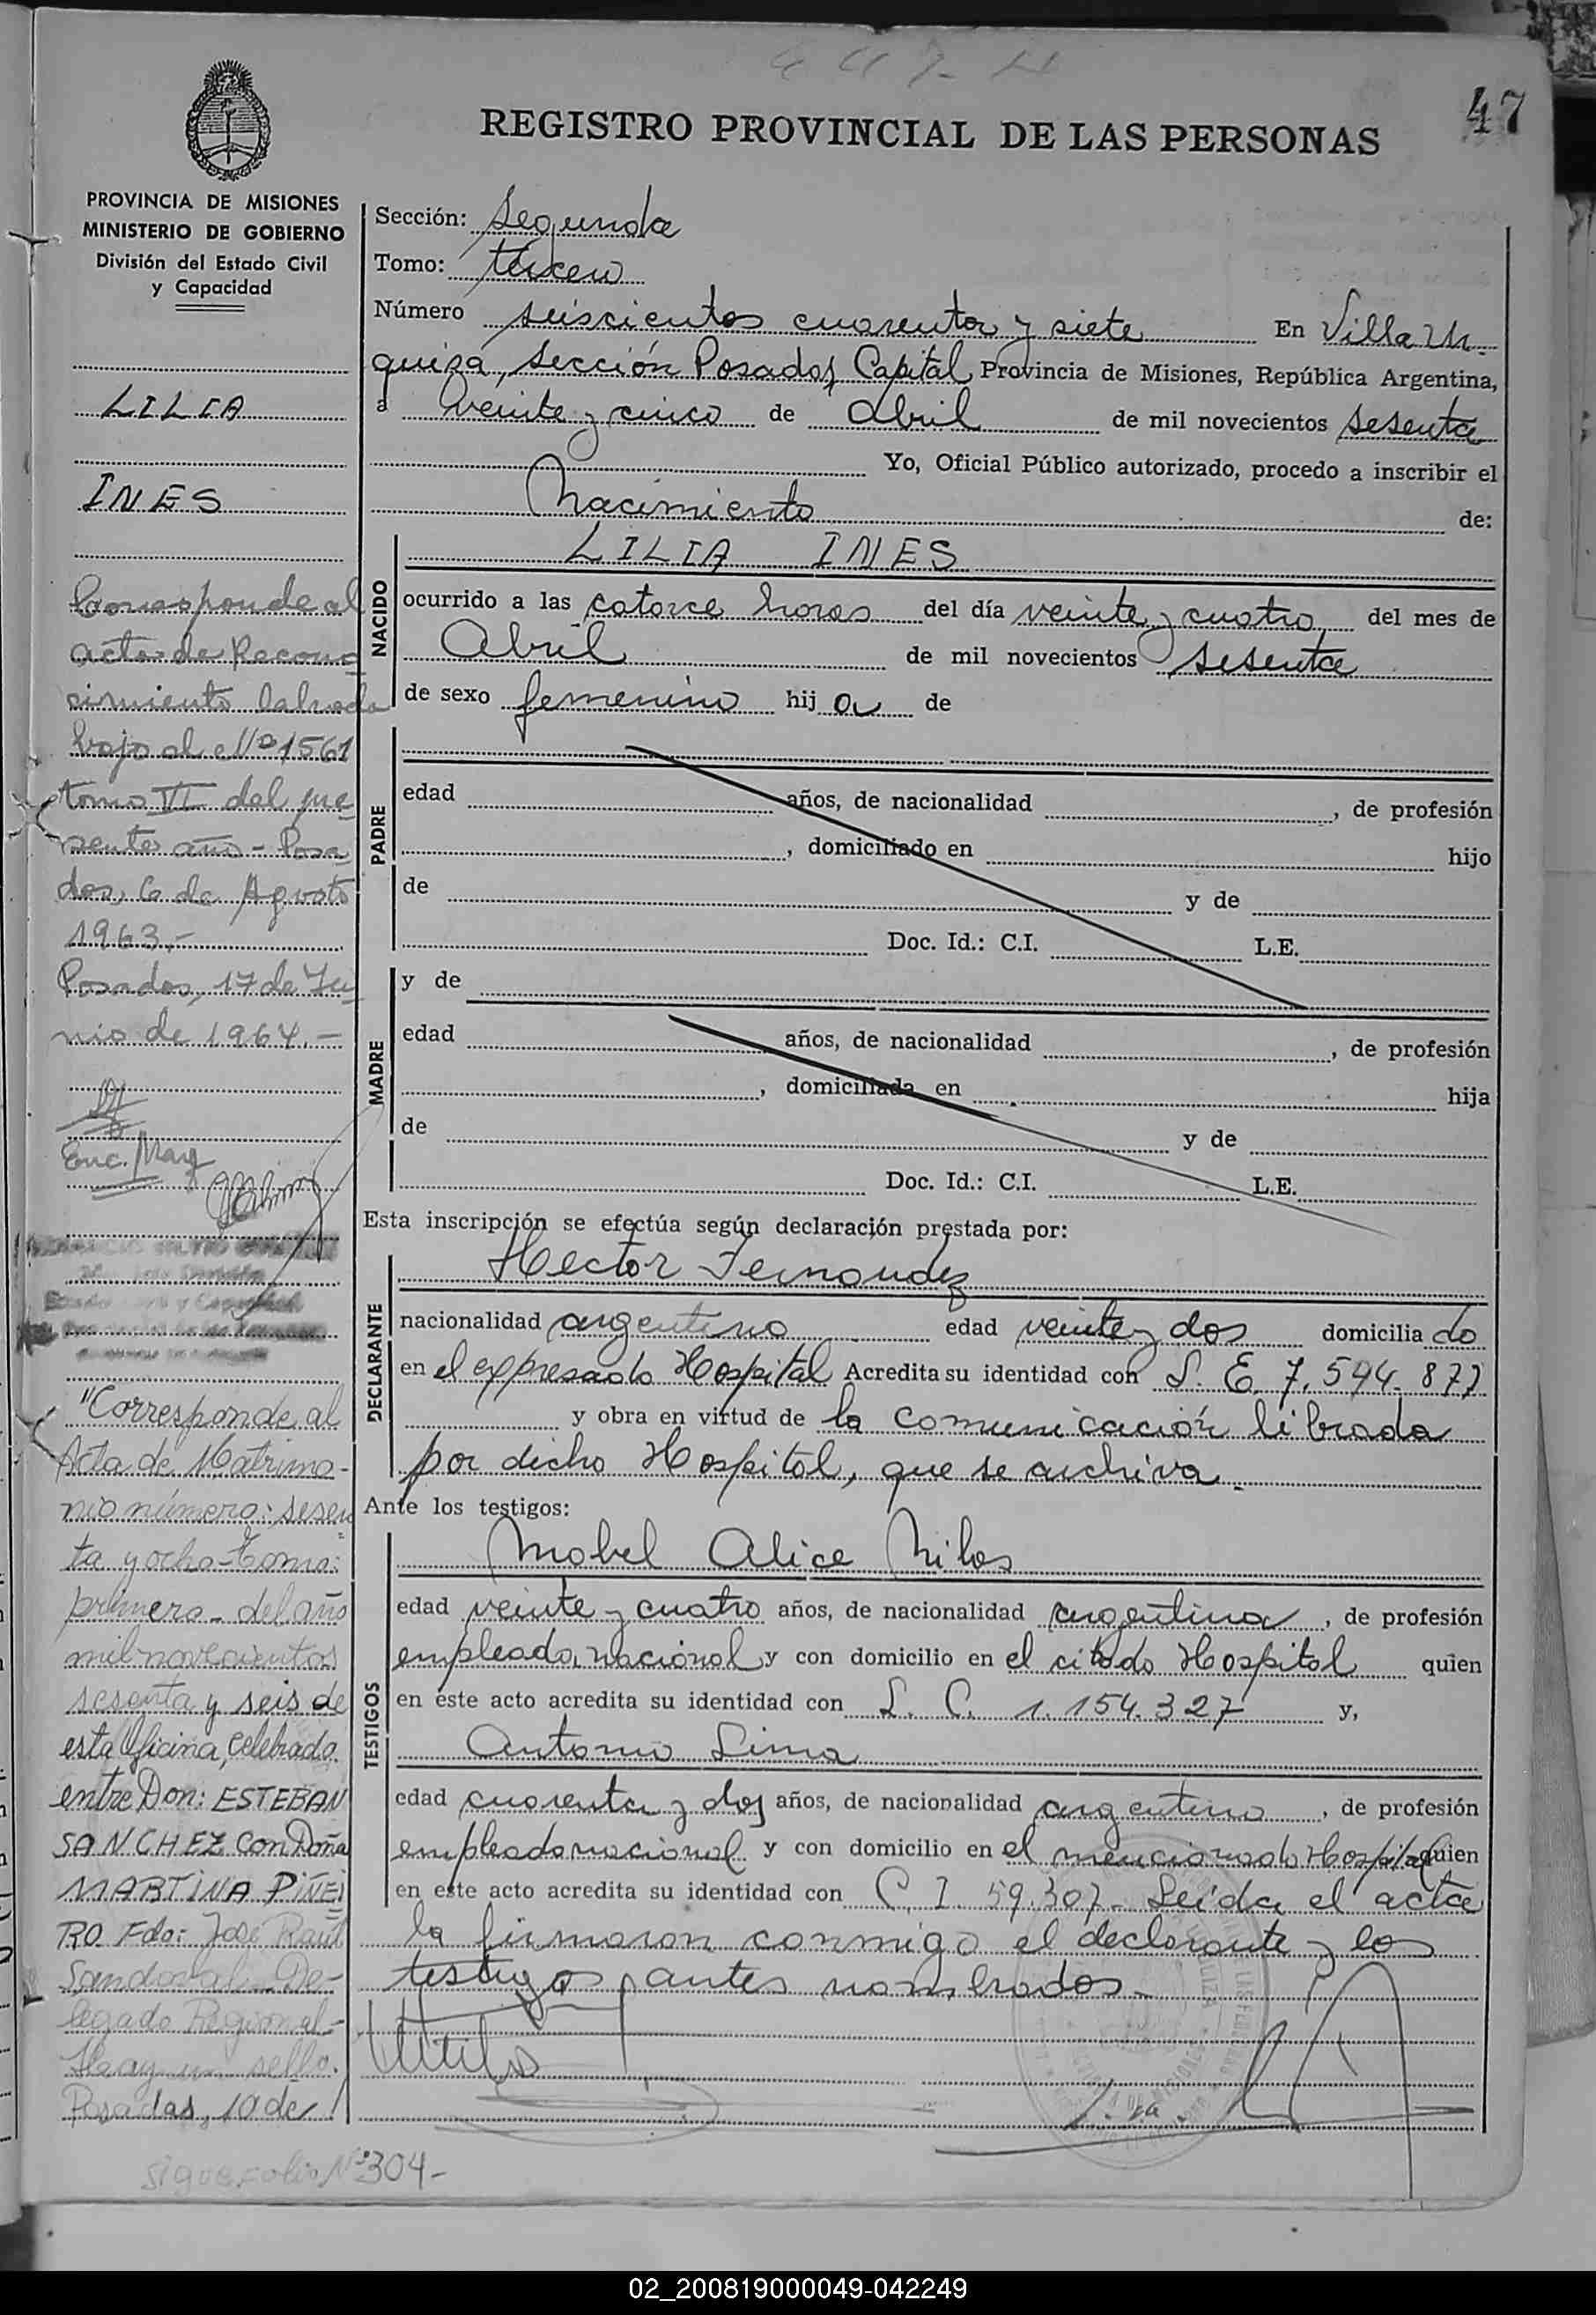 47
REGISTRO PROVINCIAL DE LAS PERSONAS
PROVINCIA DE MISIONES
MINISTERIO DE GOBIERNO
División del Estado Civil
y Capacidad
LILIA
INES
Corresponde al
acta de Recono
cimiento labrada
bajo el Nº 1561
tomo VI del pre
sente año - Posa
das, 6 de Agosto
1963.-
Posadas, 17 de Ju
nio de 1964.-
Enc. Marg
"Corresponde al
Acta de Matrimo-
nio número: sesen
ta y ocho - Tomo:
primero - del año
mil novecientos
sesenta y seis de
esta Oficina, celebrado
entre Don: ESTEBAN
SANCHEZ con Doña
MARTINA PIÑEI
RO. Fdo: José Raúl
Sandoval - De-
legado Regional -
Hay un sello.
Posadas, 10 de
Sigue Folio Nº 304-
Sección: Segunda
Tomo: tercero
Número seiscientos cuarenta y siete En Villa Ur
quiza, sección Posadas, Capital, Provincia de Misiones, República Argentina,
a veinte y cinco de Abril de mil novecientos sesenta
Yo, Oficial Público autorizado, procedo a inscribir el
Nacimiento de:
NACIDO
LILIA INES
ocurrido a las catorce horas del día veinte y cuatro del mes de
Abril de mil novecientos sesenta
de sexo femenino hij a de
PADRE
edad años, de nacionalidad , de profesión
, domiciliado en hijo
de y de
Doc. Id.: C.I. L.E.
y de
MADRE
edad años, de nacionalidad , de profesión
, domiciliada en hija
de y de
Doc. Id.: C.I. L.E.
Esta inscripción se efectúa según declaración prestada por:
DECLARANTE
Hector Fernandez
nacionalidad argentino edad veinte y dos domicilia do
en el expresado Hospital Acredita su identidad con L. E. 7.594.877
y obra en virtud de la comunicación librada
por dicho Hospital, que se archiva.
Ante los testigos:
TESTIGOS
Mabel Alice
edad veinte y cuatro años, de nacionalidad argentina, de profesión
empleada nacional y con domicilio en el citado Hospital quien
en este acto acredita su identidad con L. C. 1.154.327 y,
Antonio Lima
edad cuarenta y dos años, de nacionalidad argentino, de profesión
empleado nacional y con domicilio en el mencionado Hospital quien
en este acto acredita su identidad con C. I. 59.307- Leida el acta
la firmaron conmigo el declarante y los
testigos antes nombrados.
02_200819000049-042249